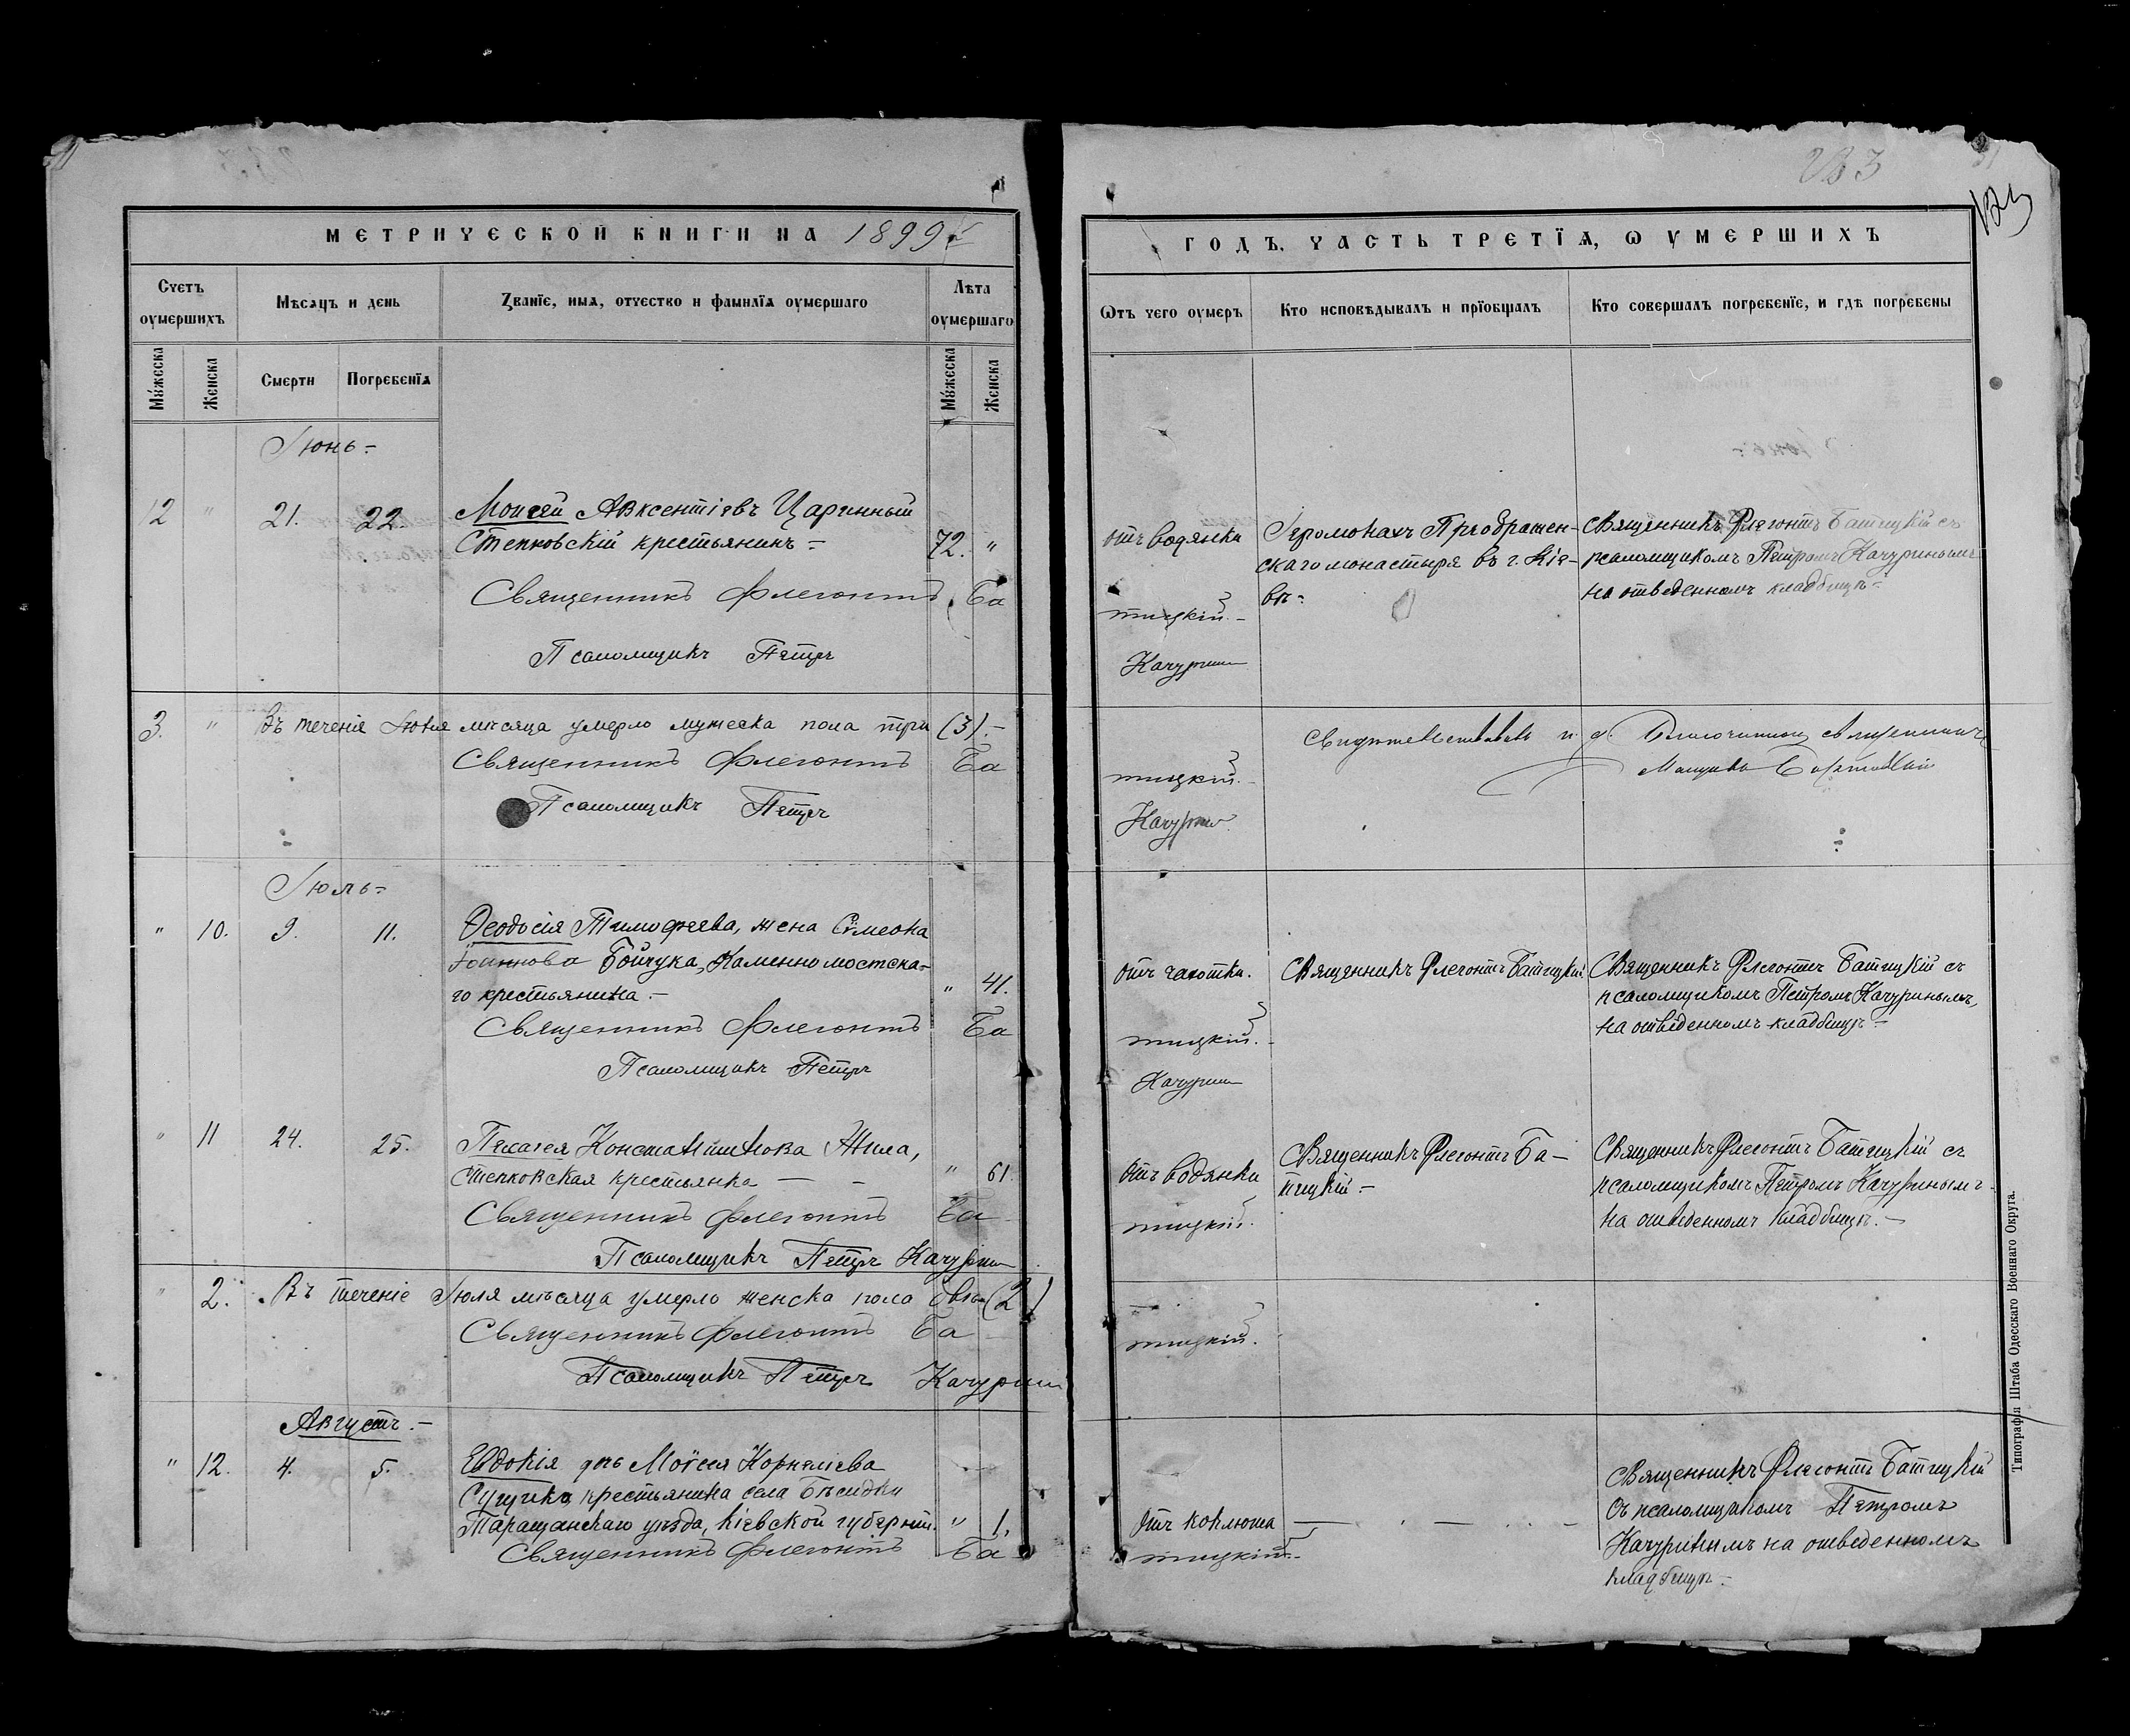 МЕТРИЧЕСКОЙ КНИГИ НА 1899 г
Счетъ оумершихъ
Мѣсяцъ и день
Званїе, имя, отчество и фамилїя оумершаго
Лѣта оумершаго
Мужеска
Женска
Смерти
Погребенїя
Мужеска
Женска
Іюнь =
12 " 21. 22. Моисей Авксентіевъ Царинный
Степковскій крестьянинъ = 72. "
Священникъ Флегонтъ Ба
Псаломщикъ Петръ
3. " Въ теченіе Іюня мѣсяца умерло мужеска пола три (3). –
Священникъ Флегонтъ Ба
Псаломщикъ Петръ
Іюль =
" 10. 9. 11. Ѳеодосія Тимофеева, жена Симеона
Іоаннова Бойчука, Каменномостска-
го крестьянина. – " 41.
Священникъ Флегонтъ Ба
Псаломщикъ Петръ
" 11 24. 25. Пелагея Константинова Жила,
Степковская крестьянка — – " 61.
Священникъ Флегонтъ Ба
Псаломщикъ Петръ Качуринъ
" 2. Въ теченіе Іюля мѣсяца умерло женска пола двѣ (2)
Священникъ Флегонтъ Ба
Псаломщикъ Петръ Качуринъ
Августъ. –
" 12. 4. 5. Евдокія дочь Моѵсея Корнеліева
крестьянина села Бѣсидки
Таращанскаго уѣзда, Кіевской губерніи. " 1.
Священникъ Флегонтъ Ба
263
ГОДЪ, ЧАСТЬ ТРЕТЇѦ, Ѡ УМЕРШИХЪ
Ѿтъ чего оумеръ
Кто исповѣдывалъ и прїобщалъ
Кто совершалъ погребенїе, и гдѣ погребены
отъ водянки
Іеромонахъ Преображен-
скаго монастыря въ г. Кіе-
вѣ =
Священникъ Флегонтъ Батицкій съ
псаломщикомъ Петромъ Качуринымъ
на отведенномъ кладбищѣ =
тицкій. –
Качуринъ
Свидѣтельствовалъ и. д. Благочиннаго священникъ
тицкій. –
Качуринъ
отъ чахотки.
Священникъ Флегонтъ Батицкій.
Священникъ Флегонтъ Батицкій съ
псаломщикомъ Петромъ Качуринымъ,
на отведенномъ кладбищѣ –
тицкій. –
Качуринъ
отъ водянки
Священникъ Флегонтъ Ба-
тицкій. –
Священникъ Флегонтъ Батицкій съ
псаломщикомъ Петромъ Качуринымъ
на отведенномъ кладбищѣ. –
тицкій.
тицкій.
отъ коклюша
Священникъ Флегонтъ Батицкій
съ псаломщикомъ Петромъ
Качуринымъ на отведенномъ
кладбищѣ. –
тицкій. –
Типографія Штаба Одесскаго Военнаго Округа.